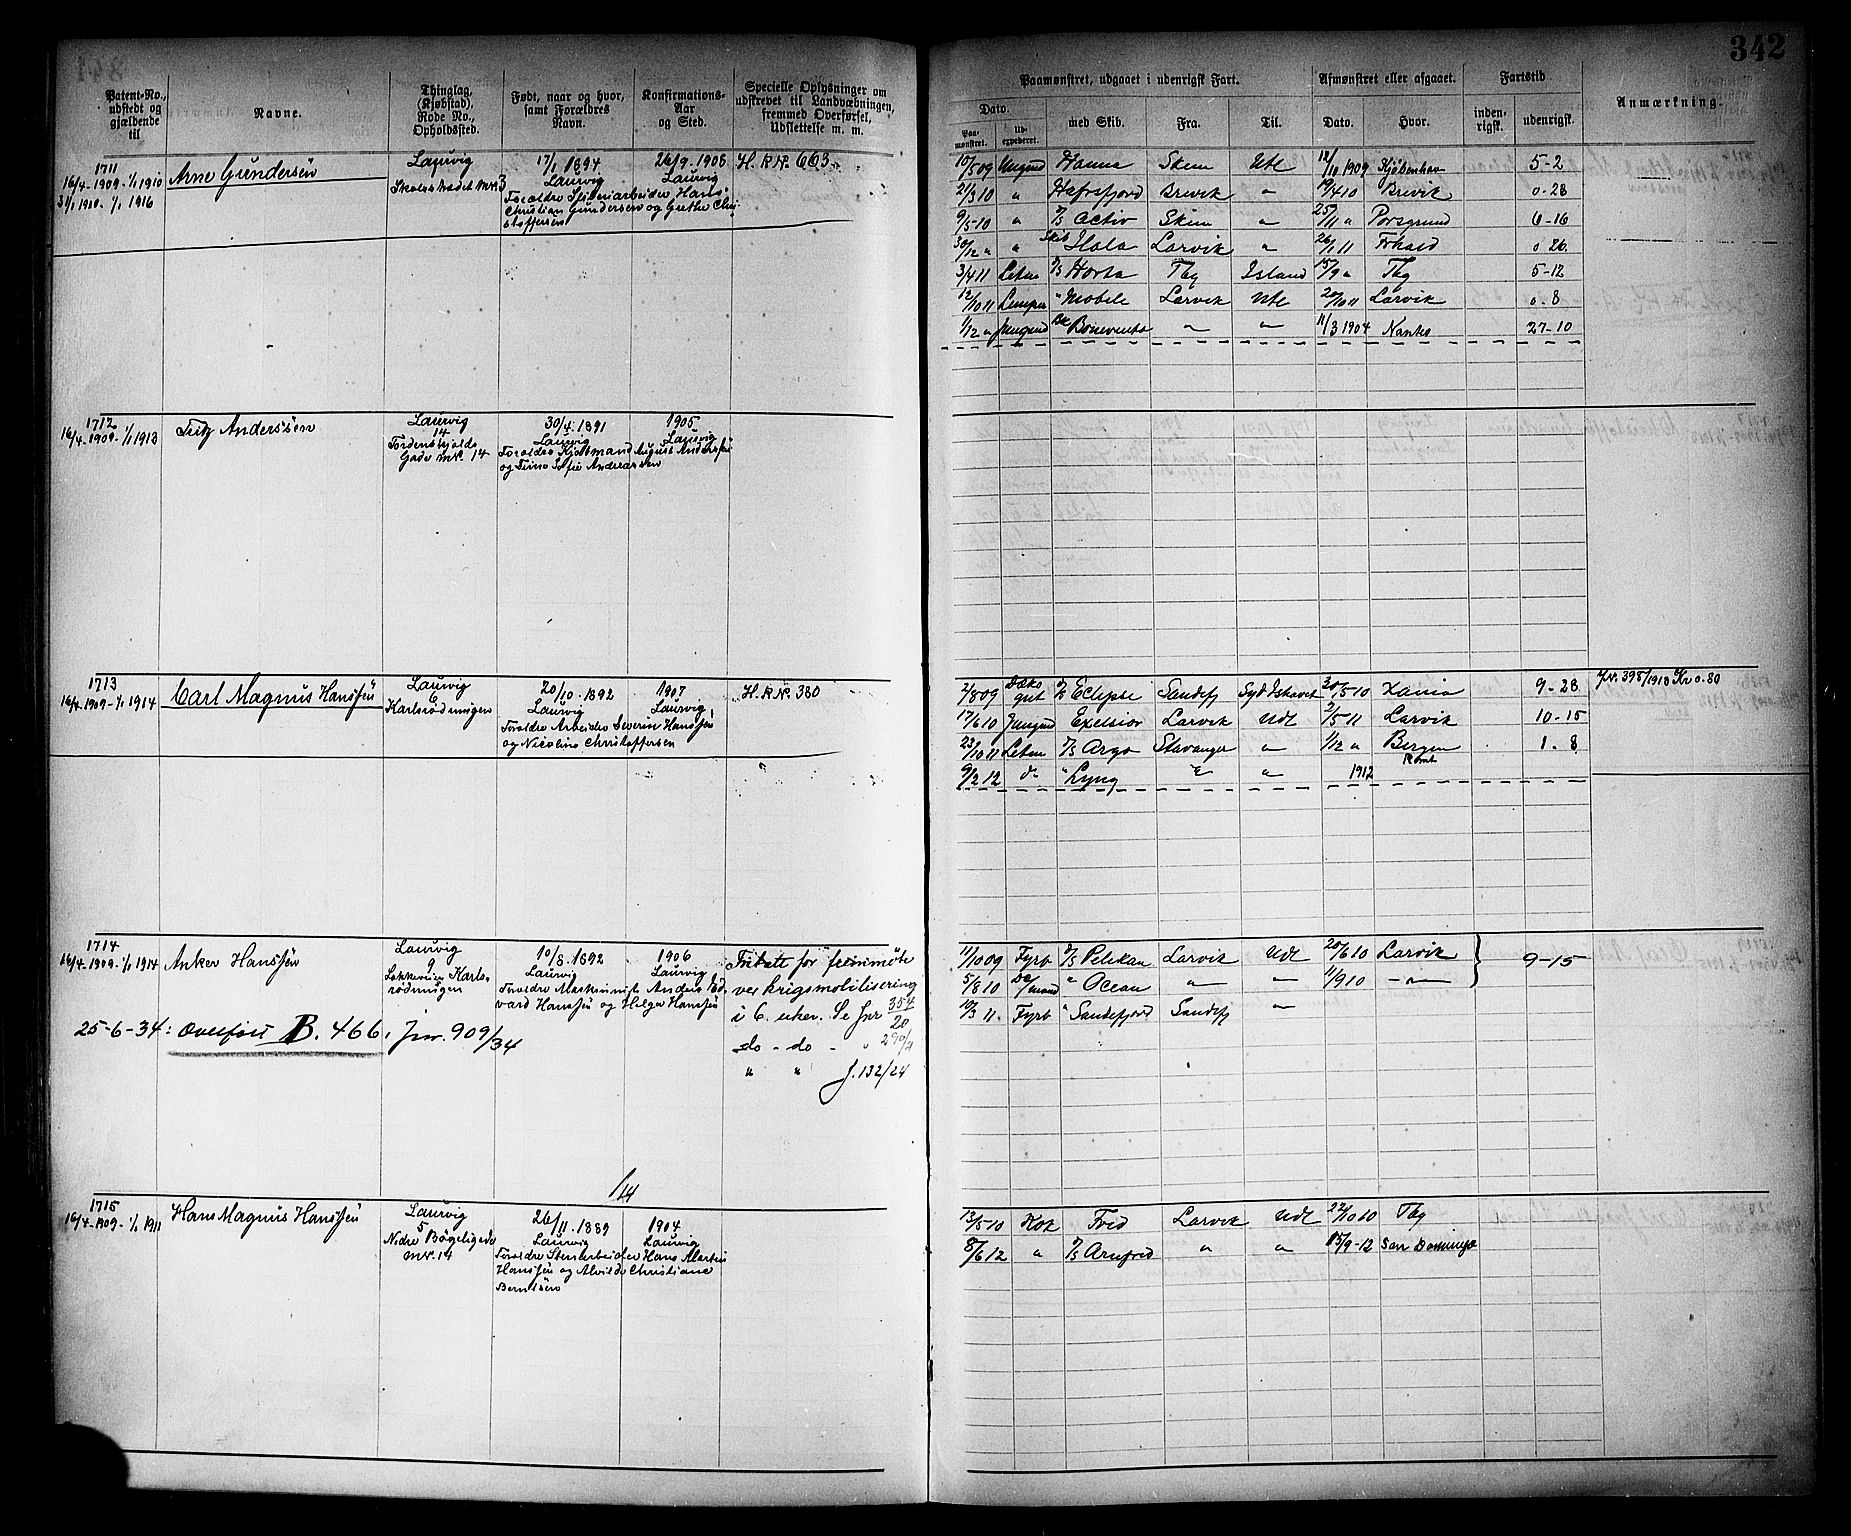 342
Patent-No., udstedt og gjældende til
Navne.
Thinglag, (Kjøbstad), Rode No., Opholdssted.
Født, naar og hvor, samt Forældres Navn.
Konfirmations-Aar og Sted.
Specielle Oplysninger om udskrevet til Landvæbningen, fremmed Overførsel, Udslettelse m. m.
Paamønstret, udgaaet i udenrigsk Fart.
Afmønstret eller afgaaet.
Fartstid
Anmærkning.
Dato.
Paamønstret. Udexpederet. med Skib. Fra. Til. Dato. Hvor. indenrigsk. udenrigsk.
1711
16/4-1909-1/1 1910
31/1 1910-1/1 1916
Arne Gundersön
Laurvig
17/1 1894
Laurvig
Christian Gundersen og Grethe Chri-
stoffersen
26/9 1908
Laurvig
H.R.N. 663
10/5 09 Jungmd Hanna Skien Udl 12/10 1909 Kjøbenhavn 5-2
21/3 10 " Hafrsfjord Brevik " 19/4 10 Brevik 0-28
9/5-10 " D/S Activ Skien " 25/11 " Porsgrund 6-16
30/12 " " Skib Hala Larvik " 26/1 11 Frhald 0 26
3/4 11 Letm D/S Horta Tbg Island 15/9 " Tbg 5-12
12/10 11 Lemper " Mobile Larvik Udl 20/10 11 Larvik 0.8
1/12 " Jungmd Bk Bonevento " " 11/3 1904 27-10
1712
16/4-1909-1/1 1913
Fritz Anderssen
Laurvig
14
Tordenskjolds
Gade mk. 14
30/4 1891
Laurvig
Foreldre Kjottmand August Anderssen
og Trine Sofie Andreassen
1905
Laurvig
1713
16/4-1909-1/1 1914
Carl Magnus Hanssen
Laurvig
6
Karlsrödningen
20/10 1892
Laurvig
Foreldre Arbeider Severin Hanssen
og Nicoline Christoffersen
1907
Laurvig
H.R.N. 380
2/8 09 Dæksgut D/S Eclipse Sandefj Syd Ishavet 30/5 10 Xania 9-28 Jr. 395/1913 Kr 0.80
17/6 10 Jungmd Exelsior Larvik Udl 2/5 11 Larvik 10-15
23/10 11 Letm D/S Argo Stavanger " 1/12 " Bergen 1-8
9/2 12 do " Lyng " " 1912 Rømt
1714
16/4-1909-1/1 1914
Anker Hanssen
Laurvig
9
Løkkeveien Karls-
rødningen
19/8 1892
Laurvig
Foreldre Maskinmist Anders Ed-
vard Hanssen og Helga Hanssen
1906
Laurvig
Fritatt for fremmöte
ved krigsmobilisering
i 6 uker. Se Jnr 354/20
do - do - " 290/21
" " J. 132/24
25-6-34: Overført B. 466. Jnr. 909/34
11/10 09 Fyrb D/S Pelikan Larvik Udl 20/6 10 Larvik
5/8 10 " Ocean " " 11/9 10 - " -
9-15
10/3 11. Fyrb " Sandefjord Sandefj "
1/14
1715
16/4-1909-1/1 1911
Hans Magnus Hanssen
Laurvig
5
Nedre Bøgeligade
mk. 14
26/11 1889
Laurvig
Foreldre Stenarbeider Hans Martin
Hanssen og Alvilde Christiane
Berntsen
1904
Laurvig
13/5 10 Kok Fred Larvik Udl 22/10 10 Tbg
8/6 12 " D/S Arnfred " " 15/9-12 San Domingo